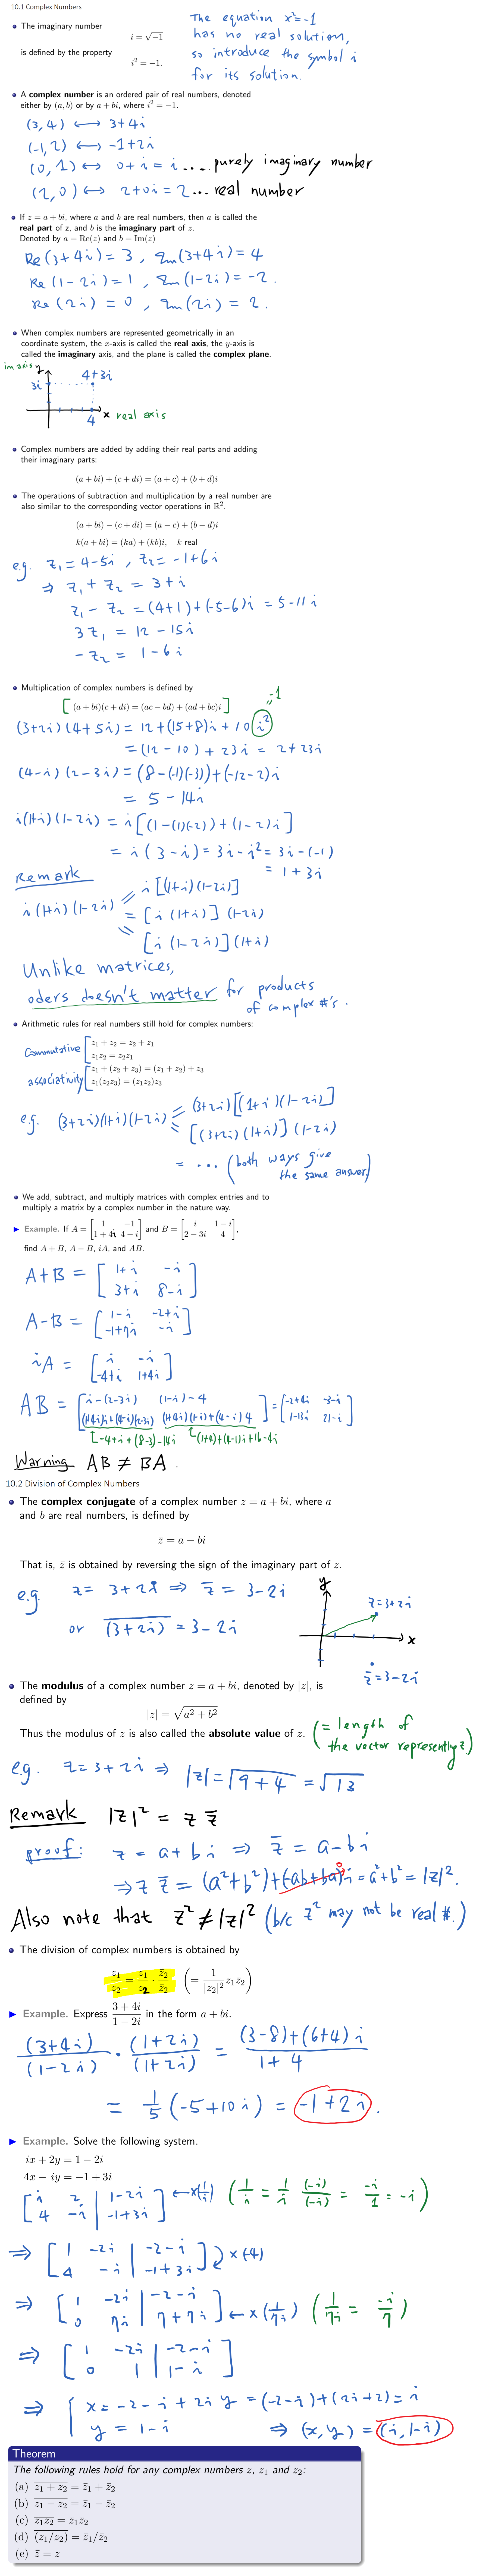 10.1 Complex Numbers
• The imaginary number
i = √−1
is defined by the property
i² = −1.
The equation x² = -1
has no real solution,
so introduce the symbol i
for its solution.
• A complex number is an ordered pair of real numbers, denoted
either by (a, b) or by a + bi, where i² = −1.
(3, 4) ⟷ 3+4i
(-1, 2) ⟷ -1+2i
(0, 1) ⟷ 0+i = i ... purely imaginary number
(2, 0) ⟷ 2+0i = 2 ... real number
• If z = a + bi, where a and b are real numbers, then a is called the
real part of z, and b is the imaginary part of z.
Denoted by a = Re(z) and b = Im(z)
Re(3+4i) = 3, Im(3+4i) = 4
Re(1-2i) = 1, Im(1-2i) = -2.
Re(2i) = 0, Im(2i) = 2.
• When complex numbers are represented geometrically in an
coordinate system, the x-axis is called the real axis, the y-axis is
called the imaginary axis, and the plane is called the complex plane.
im axis y
3i 4+3i
4 x real axis
• Complex numbers are added by adding their real parts and adding
their imaginary parts:
(a + bi) + (c + di) = (a + c) + (b + d)i
• The operations of subtraction and multiplication by a real number are
also similar to the corresponding vector operations in ℝ².
(a + bi) − (c + di) = (a − c) + (b − d)i
k(a + bi) = (ka) + (kb)i, k real
e.g. z₁ = 4-5i, z₂ = -1+6i
⇒ z₁ + z₂ = 3+i
z₁ - z₂ = (4+1)+(-5-6)i = 5-11i
3z₁ = 12-15i
-z₂ = 1-6i
• Multiplication of complex numbers is defined by
[ (a + bi)(c + di) = (ac − bd) + (ad + bc)i ]
= -1
(3+2i)(4+5i) = 12+(15+8)i+10 i²
= (12-10)+23i = 2+23i
(4-i)(2-3i) = (8-(-1)(-3))+(-12-2)i
= 5-14i
i(1+i)(1-2i) = i[(1-(1)(-2))+(1-2)i]
= i(3-i) = 3i-i² = 3i-(-1)
= 1+3i
Remark
i(1+i)(1-2i) = i[(1+i)(1-2i)]
= [i(1+i)](1-2i)
= [i(1-2i)](1+i)
Unlike matrices,
oders doesn't matter for products
of complex #'s.
• Arithmetic rules for real numbers still hold for complex numbers:
Commutative [ z₁ + z₂ = z₂ + z₁
z₁z₂ = z₂z₁
associativity [ z₁ + (z₂ + z₃) = (z₁ + z₂) + z₃
z₁(z₂z₃) = (z₁z₂)z₃
e.g. (3+2i)(1+i)(1-2i) = (3+2i)[(1+i)(1-2i)]
= [(3+2i)(1+i)](1-2i)
= ... (both ways give
the same answer)
• We add, subtract, and multiply matrices with complex entries and to
multiply a matrix by a complex number in the nature way.
▶ Example. If A = [1 −1; 1 + 4i 4 − i] and B = [i 1 − i; 2 − 3i 4],
find A + B, A − B, iA, and AB.
A+B = [1+i -i; 3+i 8-i]
A-B = [1-i -2+i; -1+7i -i]
iA = [i -i; -4+i 1+4i]
AB = [i-(2-3i) (1-i)-4; (1+4i)i+(4-i)(2-3i) (1+4i)(1-i)+(4-i)4] = [-2+4i -3-i; 1-13i 21-i]
-4+i+(8-3)-14i (1+4)+(4-1)i+16-4i
Warning AB ≠ BA.
10.2 Division of Complex Numbers
• The complex conjugate of a complex number z = a + bi, where a
and b are real numbers, is defined by
z̄ = a − bi
That is, z̄ is obtained by reversing the sign of the imaginary part of z.
e.g. z = 3+2i ⇒ z̄ = 3-2i
or (3+2i)‾ = 3-2i
y
z=3+2i
x
z̄=3-2i
• The modulus of a complex number z = a + bi, denoted by |z|, is
defined by
|z| = √(a² + b²)
Thus the modulus of z is also called the absolute value of z. (= length of
the vector representing z.)
e.g. z = 3+2i ⇒ |z| = √(9+4) = √13
Remark |z|² = z z̄
proof: z = a+bi ⇒ z̄ = a-bi
⇒ z z̄ = (a²+b²)+(-ab+ba)i = a²+b² = |z|².
0
Also note that z² ≠ |z|² (b/c z² may not be real #.)
• The division of complex numbers is obtained by
z₁/z₂ = z₁/z₂ · z̄₂/z̄₂ (= 1/|z₂|² z₁z̄₂)
▶ Example. Express (3 + 4i)/(1 − 2i) in the form a + bi.
(3+4i)/(1-2i) · (1+2i)/(1+2i) = ((3-8)+(6+4)i)/(1+4)
= 1/5 (-5+10i) = -1+2i.
▶ Example. Solve the following system.
ix + 2y = 1 − 2i
4x − iy = −1 + 3i
[i 2 | 1-2i; 4 -i | -1+3i] ← ×(1/i) (1/i = 1/i (-i)/(-i) = -i/1 = -i)
⇒ [1 -2i | -2-i; 4 -i | -1+3i] ×(-4)
⇒ [1 -2i | -2-i; 0 7i | 7+7i] ← ×(1/7i) (1/7i = -i/7)
⇒ [1 -2i | -2-i; 0 1 | 1-i]
⇒ { x = -2-i+2iy = (-2-i)+(2i+2) = i
y = 1-i ⇒ (x, y) = (i, 1-i)
Theorem
The following rules hold for any complex numbers z, z₁ and z₂:
(a) (z₁ + z₂)‾ = z̄₁ + z̄₂
(b) (z₁ − z₂)‾ = z̄₁ − z̄₂
(c) (z₁z₂)‾ = z̄₁z̄₂
(d) (z₁/z₂)‾ = z̄₁/z̄₂
(e) z̿ = z